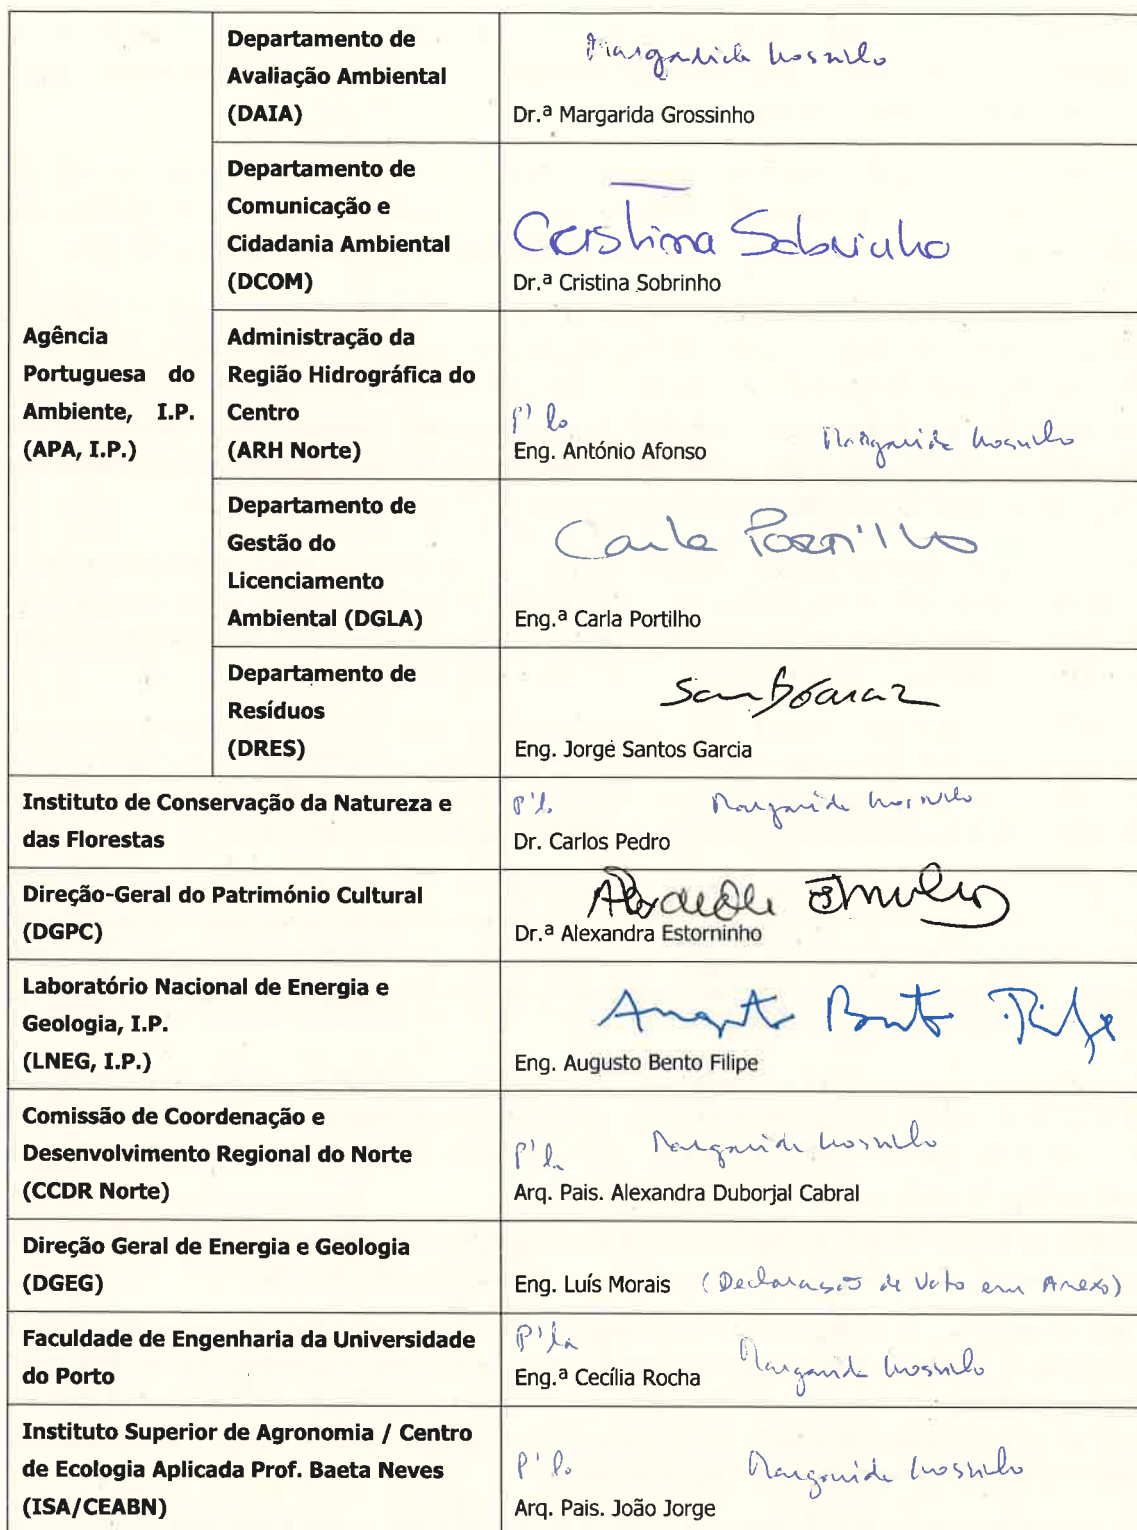 Agência
Portuguesa do
Ambiente, I.P.
(APA, I.P.)
Departamento de
Avaliação Ambiental
(DAIA)
Margarida Grossinho
Dr.ª Margarida Grossinho
Departamento de
Comunicação e
Cidadania Ambiental
(DCOM)
Cristina Sobrinho
Dr.ª Cristina Sobrinho
Administração da
Região Hidrográfica do
Centro
(ARH Norte)
P'lo
Eng. António Afonso
Margarida Grossinho
Departamento de
Gestão do
Licenciamento
Ambiental (DGLA)
Carla Portilho
Eng.ª Carla Portilho
Departamento de
Resíduos
(DRES)
Eng. Jorge Santos Garcia
Instituto de Conservação da Natureza e
das Florestas
P'lo Margarida Grossinho
Dr. Carlos Pedro
Direção-Geral do Património Cultural
(DGPC)
Dr.ª Alexandra Estorninho
Laboratório Nacional de Energia e
Geologia, I.P.
(LNEG, I.P.)
Augusto Bento Filipe
Eng. Augusto Bento Filipe
Comissão de Coordenação e
Desenvolvimento Regional do Norte
(CCDR Norte)
P'la Margarida Grossinho
Arq. Pais. Alexandra Duborjal Cabral
Direção Geral de Energia e Geologia
(DGEG)
Eng. Luís Morais (Declaração de Voto em Anexo)
Faculdade de Engenharia da Universidade
do Porto
P'la
Eng.ª Cecília Rocha Margarida Grossinho
Instituto Superior de Agronomia / Centro
de Ecologia Aplicada Prof. Baeta Neves
(ISA/CEABN)
P'lo Margarida Grossinho
Arq. Pais. João Jorge